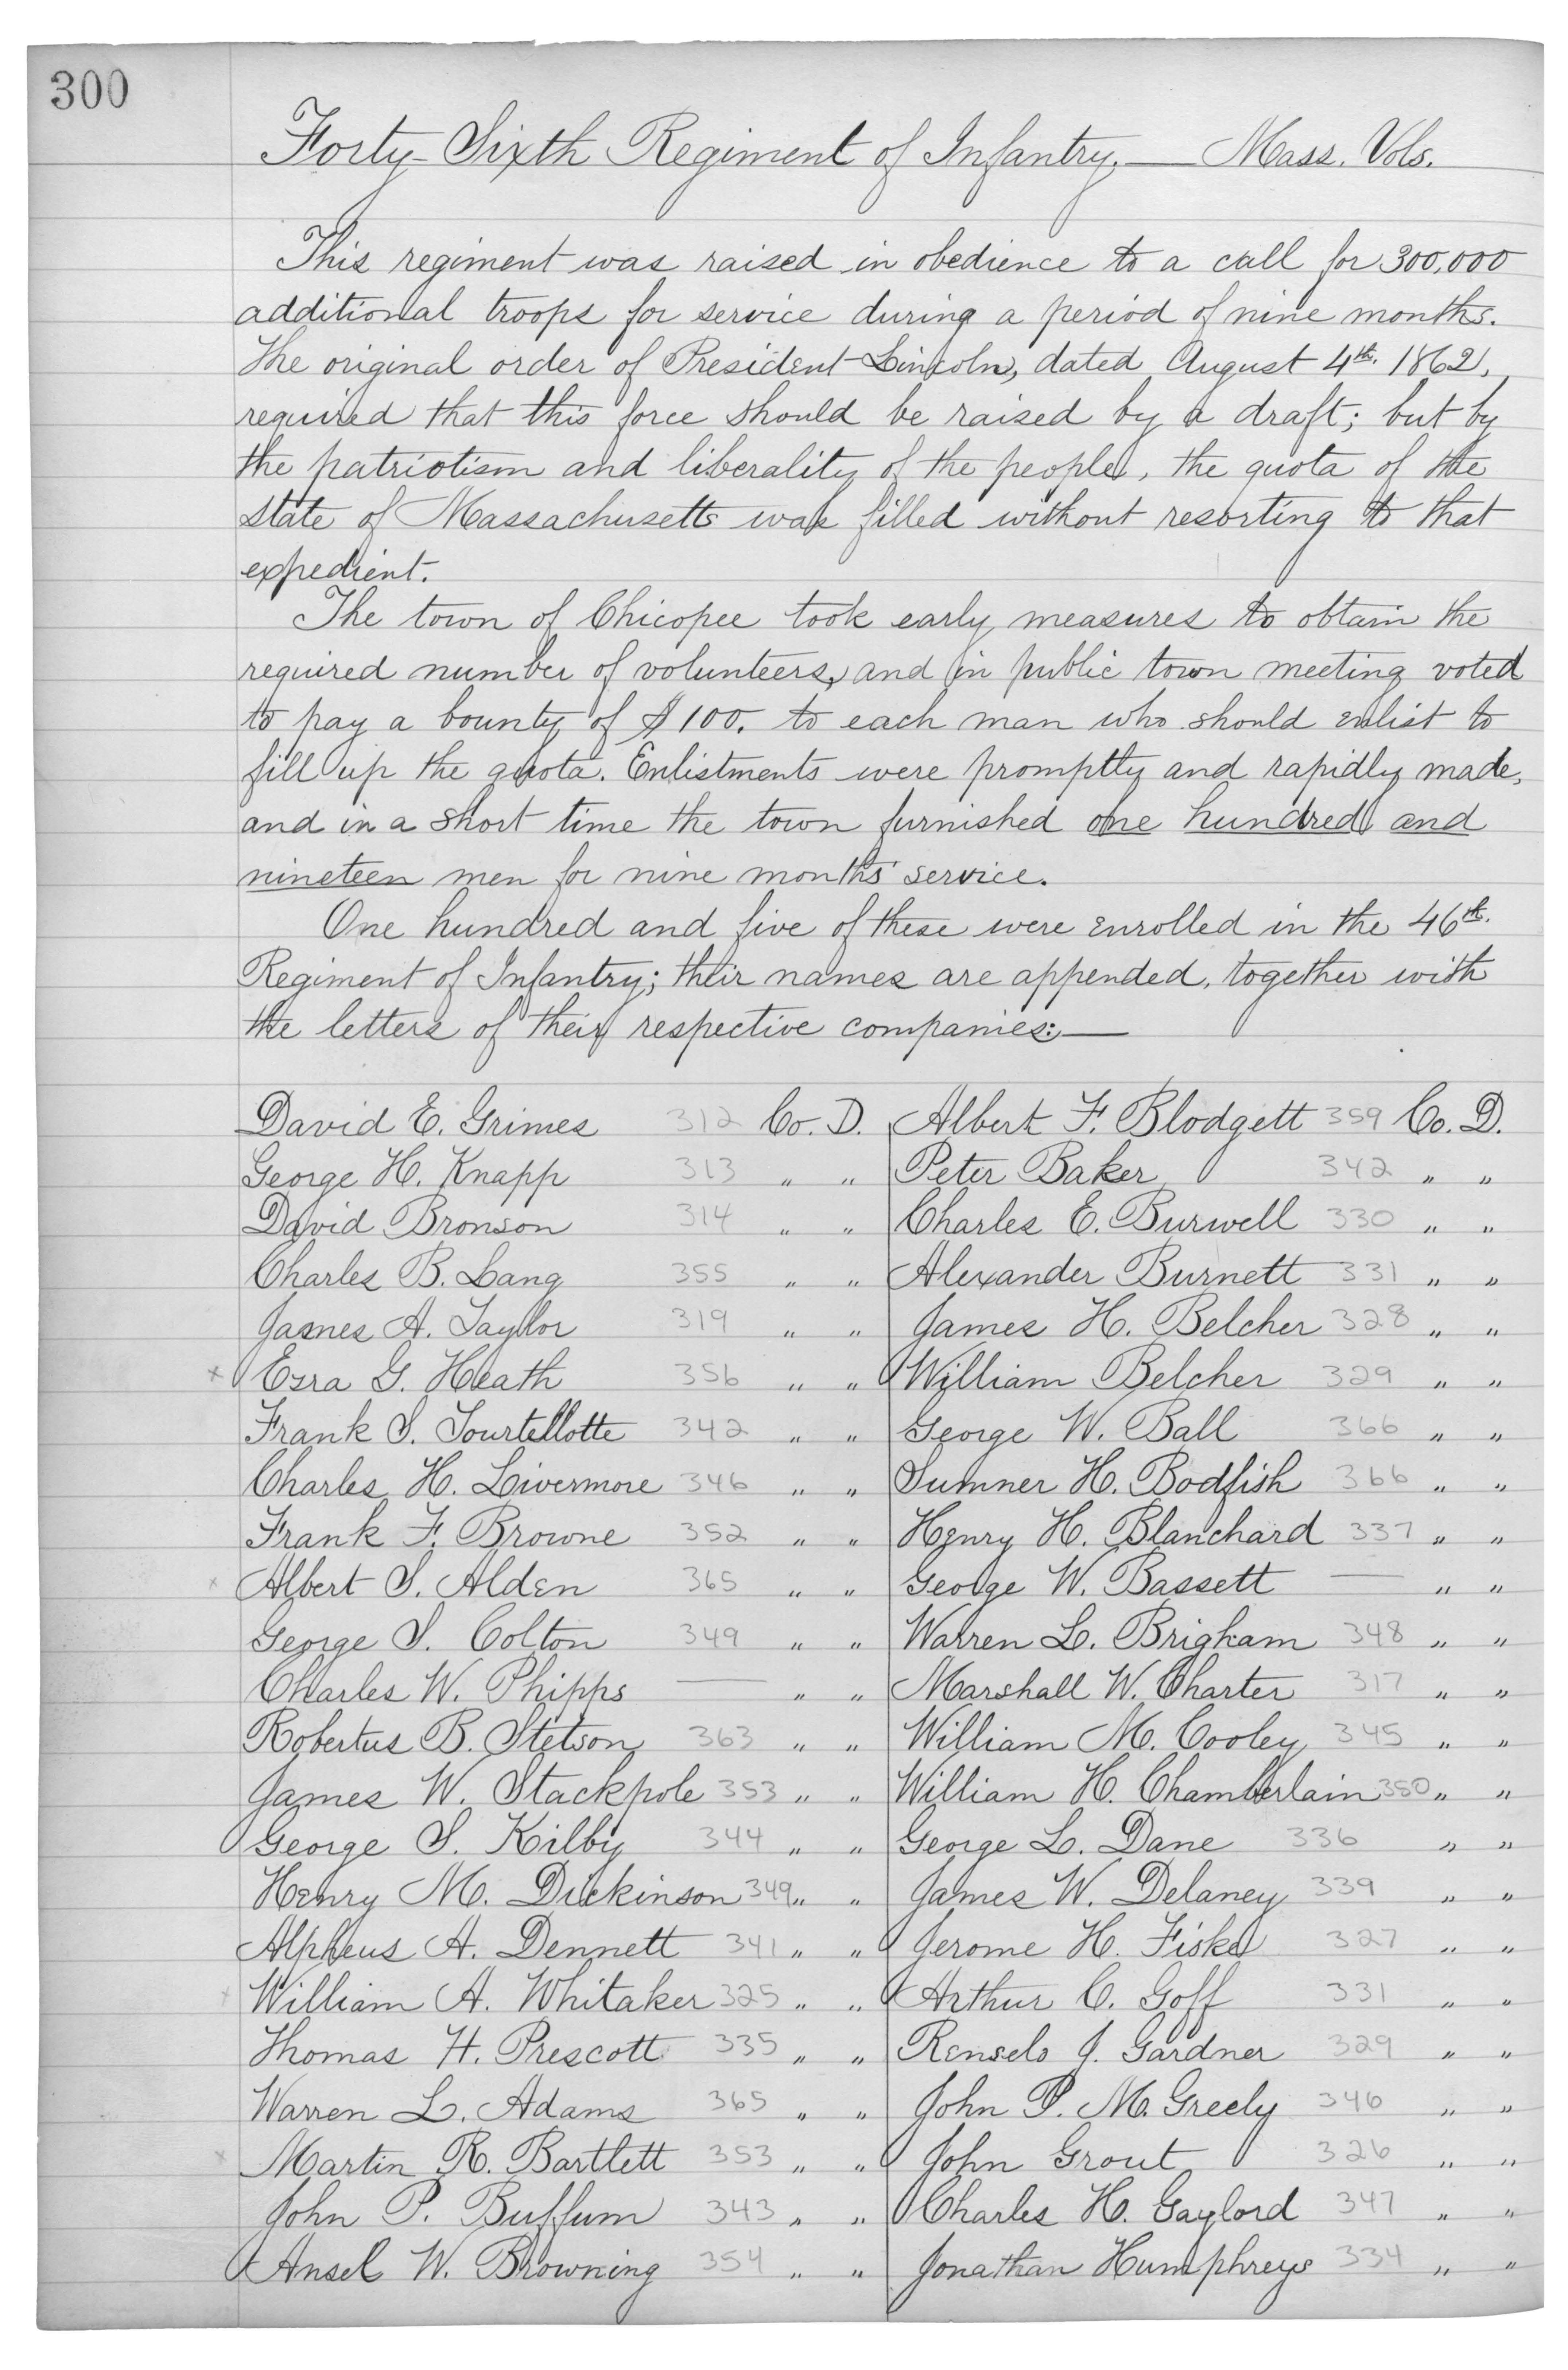 300
Forty-Sixth Regiment of Infantry,— Mass. Vols.
This regiment was raised in obedience to a call for 300,000
additional troops for service during a period of nine months.
The original order of President Lincoln, dated August 4th. 1862,
required that this force should be raised by a draft; but by
the patriotism and liberality of the people, the quota of the
state of Massachusetts was filled without resorting to that
expedient.
The town of Chicopee took early measures to obtain the
required number of volunteers, and in public town meeting voted
to pay a bounty of $100. to each man who should enlist to
fill up the quota. Enlistments were promptly and rapidly made,
and in a short time the town furnished one hundred and
nineteen men for nine months' service.
One hundred and five of these were enrolled in the 46th.
Regiment of Infantry; their names are appended, together with
the letters of their respective companies:—
David E. Grimes 312 Co. D. Albert F. Blodgett 359 Co. D.
George H. Knapp 313 " " Peter Baker 342 " "
David Bronson 314 " " Charles E. Burwell 330 " "
Charles B. Lang 355 " " Alexander Burnett 331 " "
James A. Taylor 319 " " James H. Belcher 328 " "
x Ezra G. Heath 356 " " William Belcher 329 " "
Frank S. Tourtellotte 342 " " George W. Ball 366 " "
Charles H. Livermore 346 " " Sumner H. Bodfish 366 " "
Frank F. Browne 352 " " Henry H. Blanchard 337 " "
x Albert S. Alden 365 " " George W. Bassett — " "
George S. Colton 349 " " Warren L. Brigham 348 " "
Charles W. Phipps — " " Marshall W. Charter 317 " "
Robertus B. Stetson 363 " " William M. Cooley 345 " "
James W. Stackpole 353 " " William H. Chamberlain 350 " "
George S. Kilby 344 " " George L. Dane 336 " "
Henry M. Dickinson 349 " " James W. Delaney 339 " "
Alpheus A. Dennett 341 " " Jerome H. Fiske 327 " "
x William A. Whitaker 325 " " Arthur C. Goff 331 " "
Thomas H. Prescott 335 " " Renselo J. Gardner 329 " "
Warren L. Adams 365 " " John P. M. Greely 346 " "
x Martin R. Bartlett 353 " " John Grout 326 " "
John P. Buffum 343 " " Charles H. Gaylord 347 " "
Ansel W. Browning 354 " " Jonathan Humphreys 334 " "